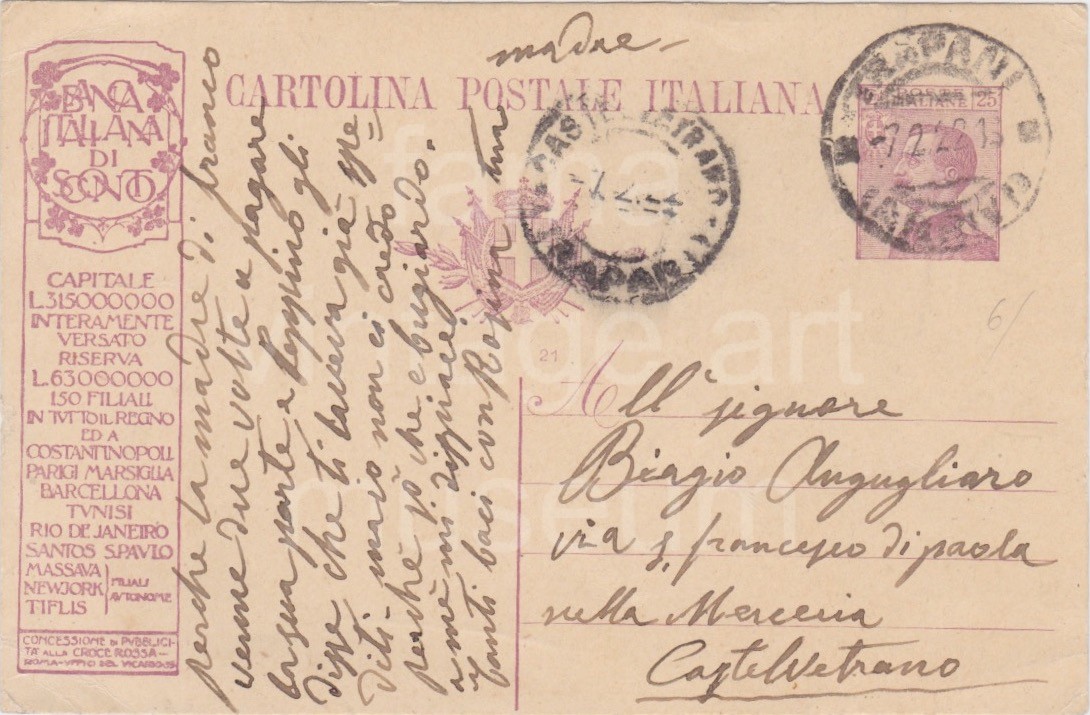 BANCA
ITALIANA
DI
SCONTO
CAPITALE
L.315000000
INTERAMENTE
VERSATO
RISERVA
L.63000000
150 FILIALI
IN TVTTO IL REGNO
ED A
COSTANTINOPOLI
PARIGI MARSIGLIA
BARCELLONA
TVNISI
RIO DE JANEIRO
SANTOS S.PAVLO
MASSAVA
NEWJORK
TIFLIS
FILIALI
AVTONOME
CONCESSIONE DI PVBBLICI-
TÀ ALLA CROCE ROSSA-
ROMA-VFFICI DEL VICARIO
CARTOLINA POSTALE ITALIANA
POSTE
ITALIANE 25
TRAPANI
7.2.22.1
CASTELVETRANO
TRAPANI
21
All' signore
Biagio Angugliaro
via S. francesco di paola
nella Merceria
Castelvetrano
perche la madre di franco
venne due volte a pagare
la sua parte e Peppino gli
disse che ti l'aveva già spe=
diti- ma io non ci credo
perchè so che è bugiardo.
a me mi dispiace
tanti baci con Rosina tua
madre
6/
fama
vintage art
museum